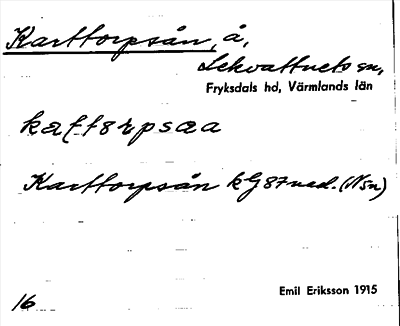 Karttorpsån, å,
Lekvattnets sn,
Fryksdals hd, Värmlands län
Karttorpsån kG87ned. (Nsn)
Emil Eriksson 1915
16